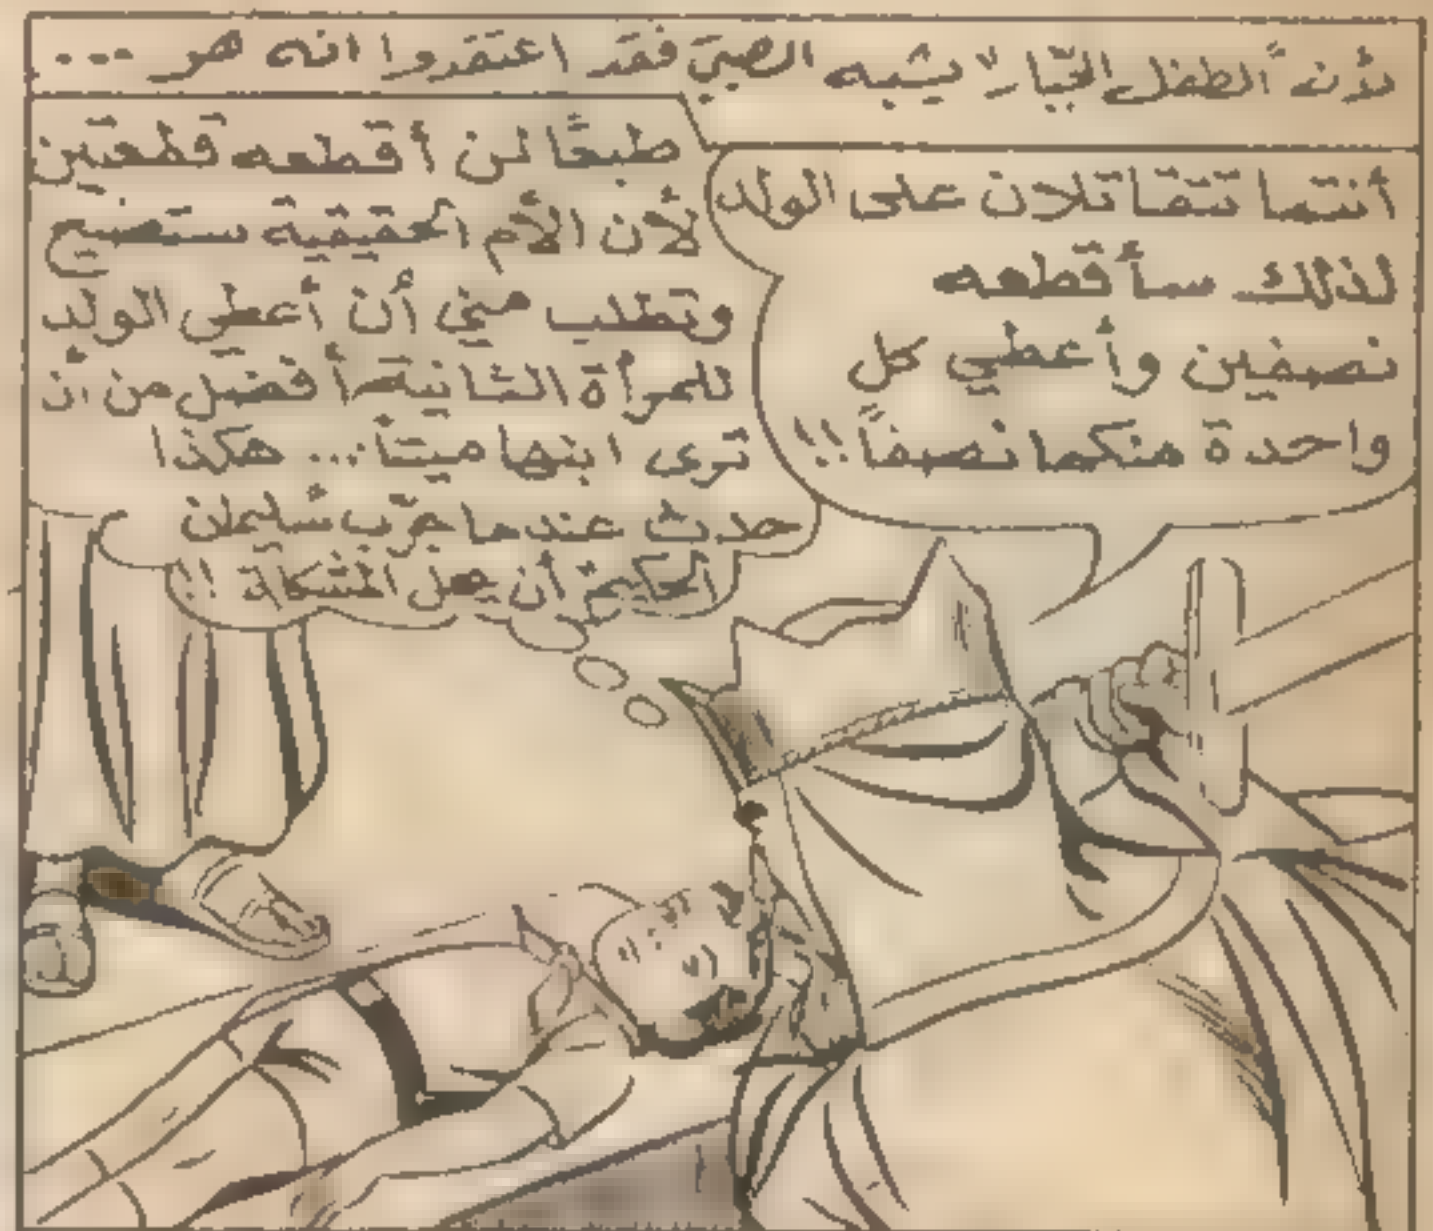 لأن الطفل الجبار لا يشبه الصبي فقد اعتقدوا انه هو ...
أنتما تتقاتلان على الولد
لذلك سأقطعه
نصفين وأعطي كل
واحدة منكما نصفاً !!
طبعًا لن أقطعه قطعتين
لأن الأم الحقيقية ستصيح
وتطلب مني أن أعطي الولد
للمرأة الثانية أفضل من أن
ترى ابنها ميتاً ... هكذا
حدث عندما جرّب سليمان
الحكيم أن يحل المشكلة !!